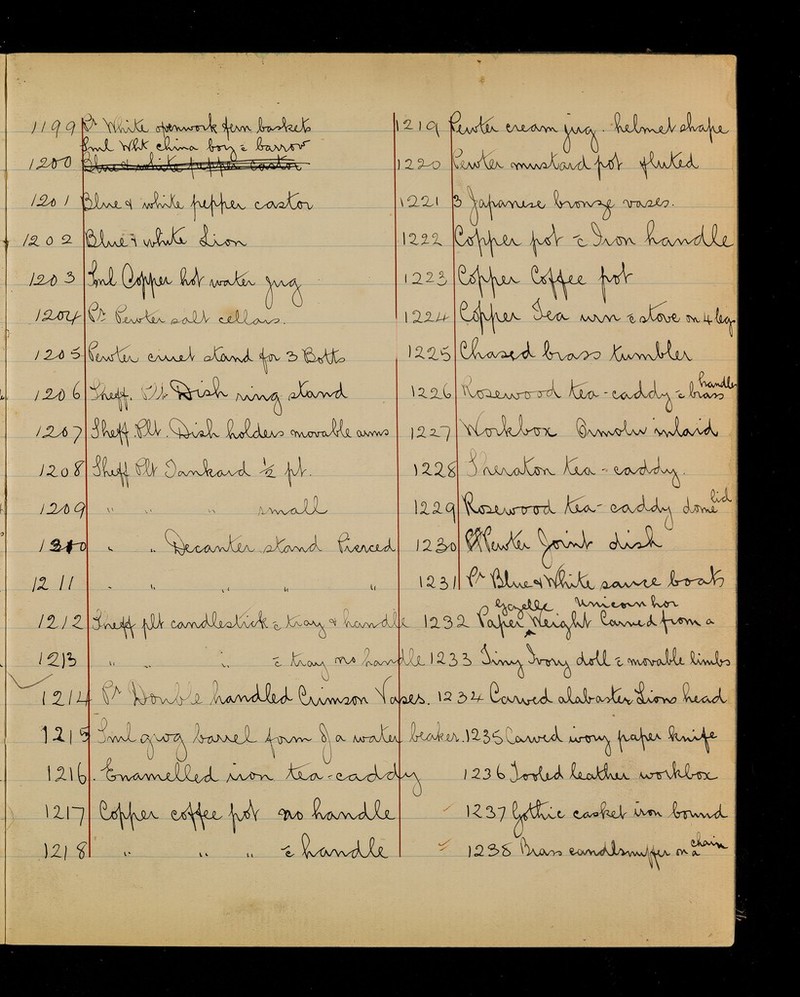 1199 Pr White openwork fern baskets
Sml Wht china boy c̄ barrow
1200 Blue & white pepper castor
1201 Blue & white pepper castor
1202 Blue & white Lion
1203 Sml Copper hot water jug
1204 Pr Pewter salt cellars.
1205 Pewter cruet stand for 3 Botts
1206 Sheff. Plt Dish ring stand
1207 Sheff. Plt. Dish holders movable arms
1208 Sheff Plt Tankard ½ pt.
1209 " " " small
1210 " " Decanter stand Pierced
1211 " " " " "
1212 Sheff plt candlestick c̄ tray & handle
1213 " " " c̄ tray no handle
1214 Pr Double handled Crimson Vases.
1215 Sml grog barrel form of a water beaker.
1216 Enamelled iron tea-caddy
1217 Copper coffee pot no handle
1218 " " " c̄ handle
1219 Pewter cream jug. helmet shape
1220 Pewter mustard pot fluted
1221 3 Japanese bronze vases.
1222 Copper pot c̄ Iron handle
1223 Copper Coffee pot
1224 Copper Tea urn c̄ stove on 4 leg.
1225 Chased brass tumbler
1226 Rosewood tea-caddy c̄ brass handle
1227 Workbox Ormolu inlaid
1228 Sheraton tea-caddy.
1229 Rosewood tea-caddy dome lid
1230 Pewter Joint dish
1231 Pr Blue & White sauce boats
Gazelle Unicorn hor
1232 Paper Weight Carved from a
1233 Tiny Ivory doll c̄ movable limbs
1234 Carved alabaster Lions head
1235 Carved ivory paper knife
1236 Tooled leather workbox
1237 Gothic casket iron bound
1238 Brass candlesnuffer on a chain